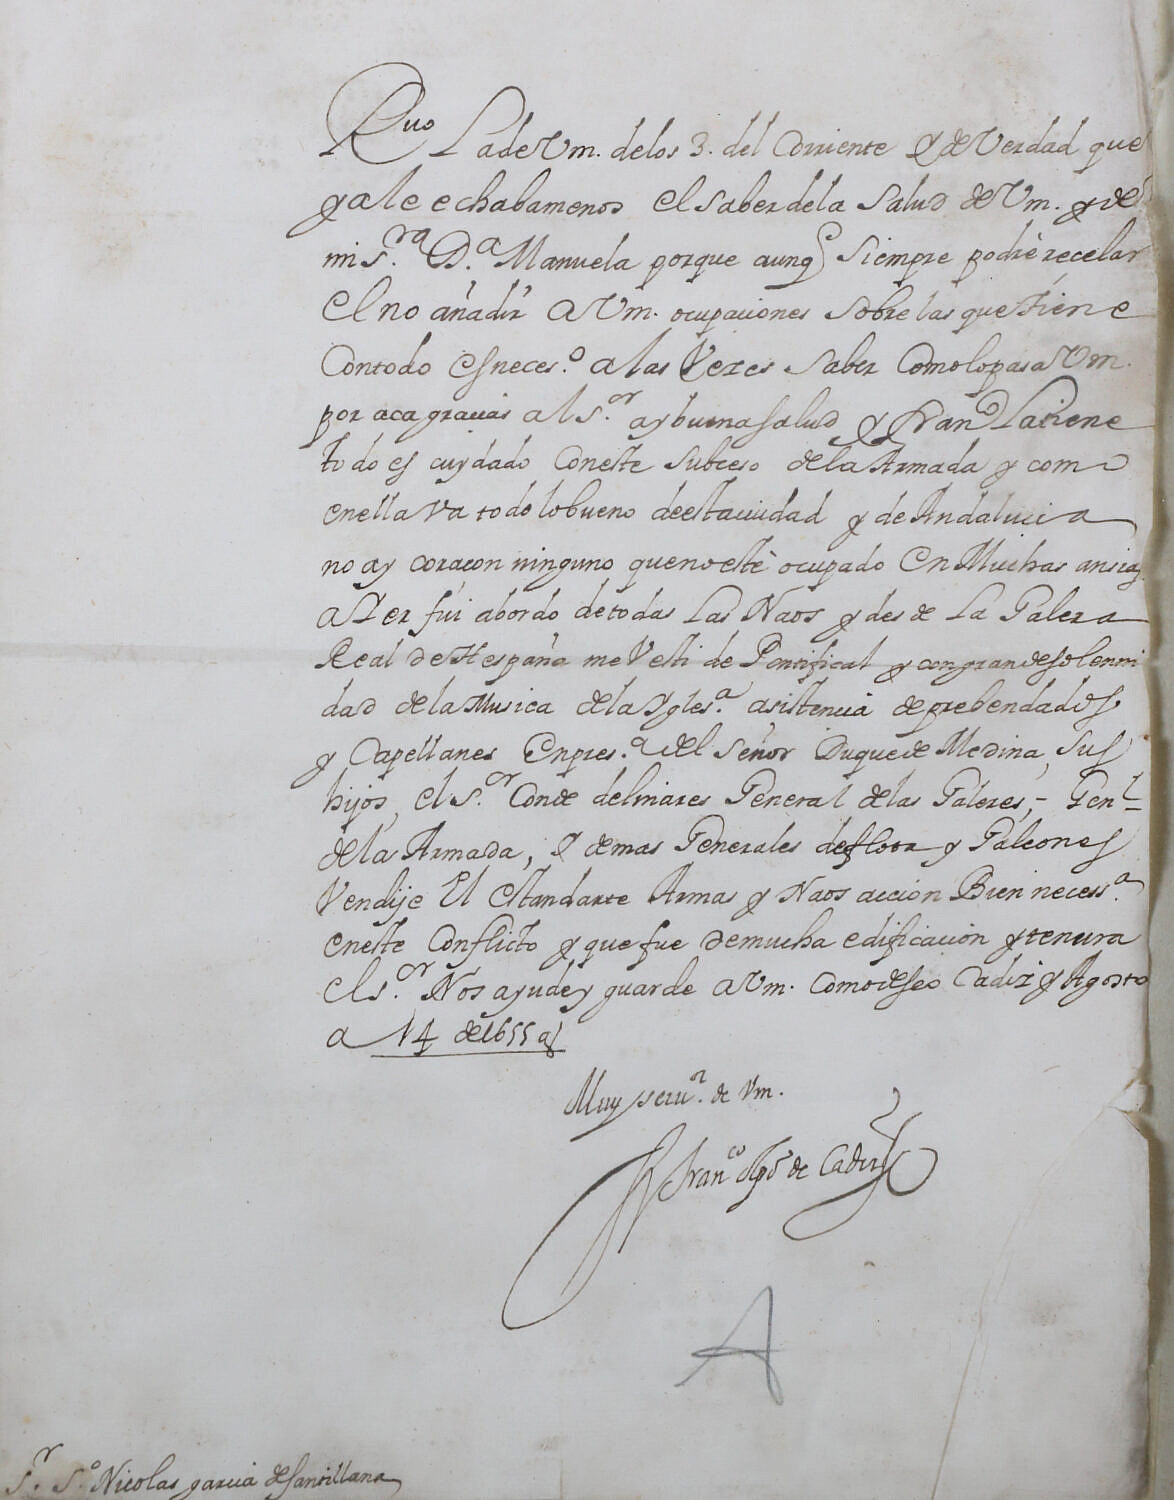 Rvo La de Vm. de los 3. del Corriente y de Verdad que
ya le echaba menos el saber de la Salud de Vm. y de
mi S.ra D.a Manuela porque aunq siempre podrè recelar
el no añadir a Vm. ocupaciones sobre las que tiene
Con todo es neces.o a las Veces saber Como lo pasa Vm.
por aca gracias al S.or ay buena salud y Fran.co La tiene
todo es cuydado Con este subceso de la Armada y como
en ella va todo lo bueno de esta ciudad y de Andalucia
no ay coraçon ninguno que no estè ocupado En Muchas ansias
aller fui abordo de todas Las Naos y desde La Galera
Real de Hespaña me Vesti de Pontifical y con grande solenni
dad de la Musica de la Ygles.a asistencia de prebendados
y Capellanes En pres.a del Señor Duque de Medina, sus
hijos, el S.or Conde de linares General de las Galeres, - Gen.l
de la Armada, y demas Generales de flota y Galeones
Vendije El estandarte Armas y Naos accion Bien necess.a
en este Conflicto y que fue de mucha edificacion y tenura
el S.or Nos ayude y guarde a Vm. Como deseo Cadiz y Agosto
a 14 de 1655 as
Muy seru.or de Vm.
Fran.co obpo de Cadiz
A
S.r S.o Nicolas garcia de Santillana